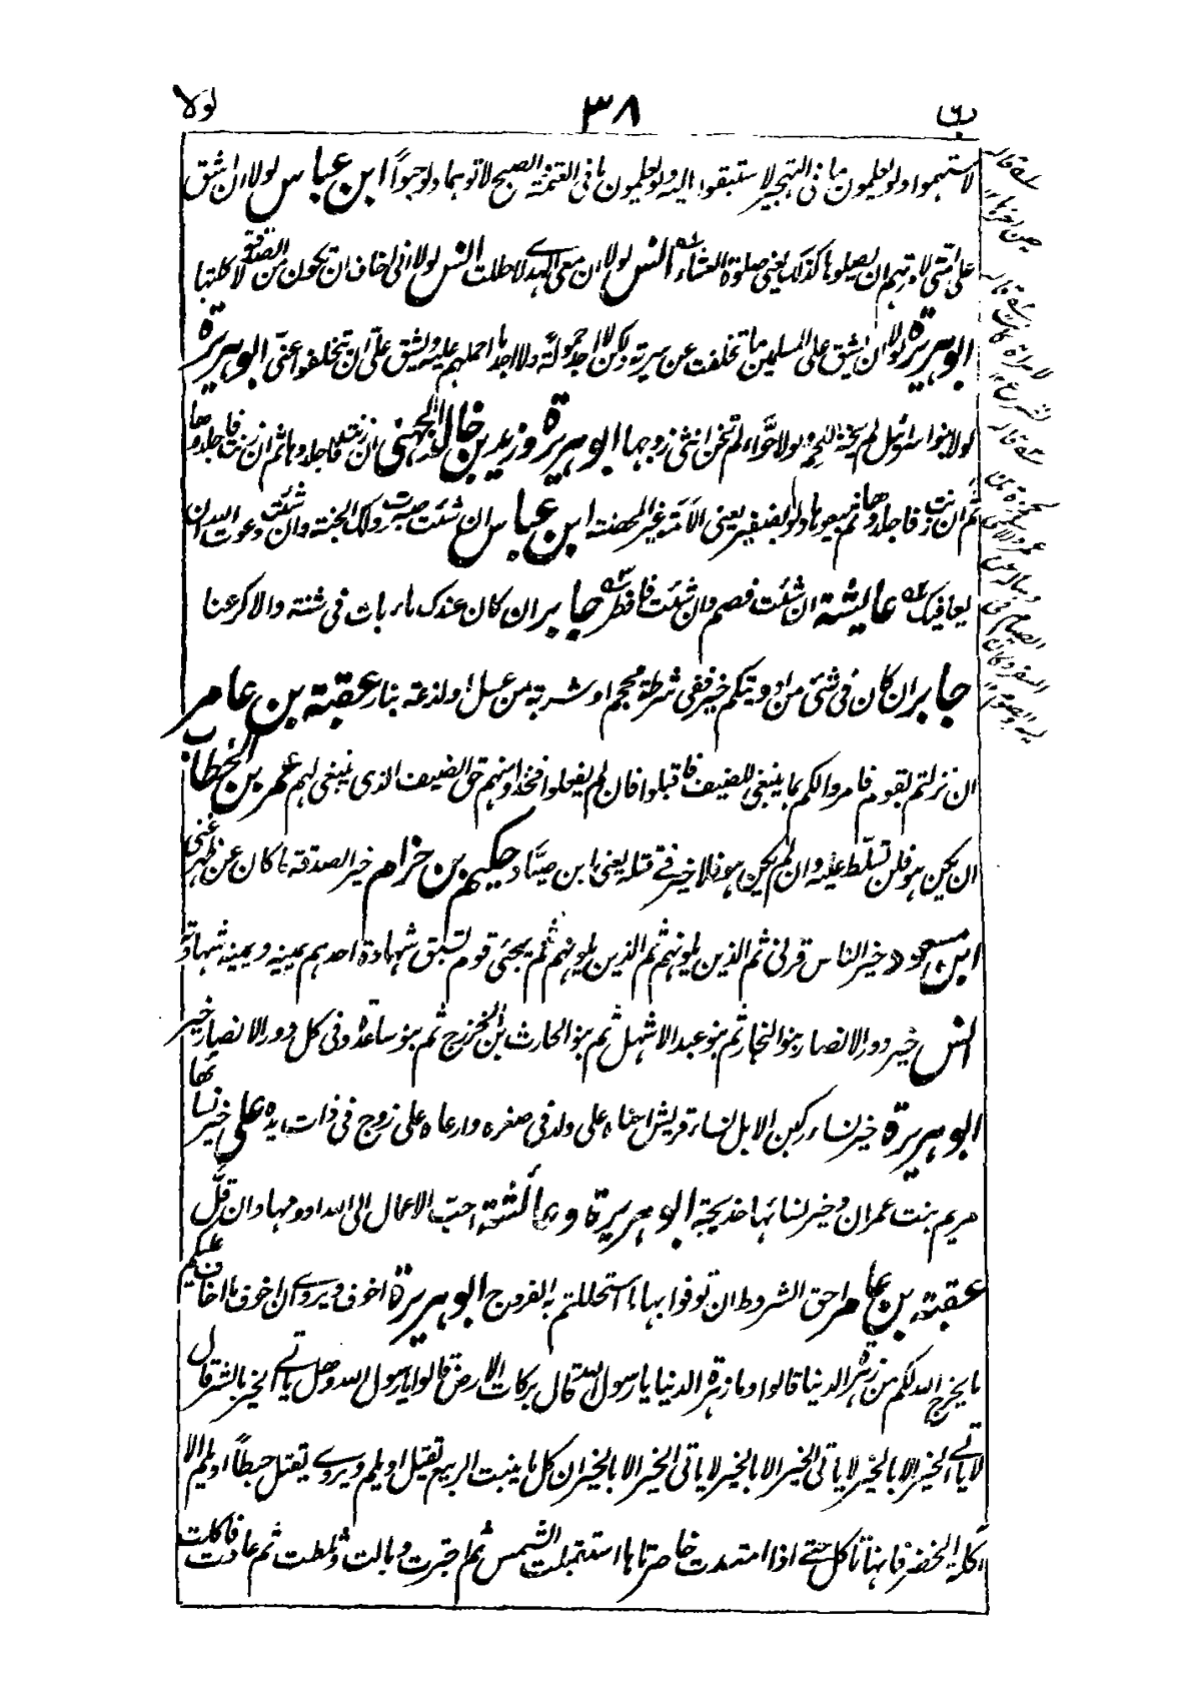 ق ٣٨ لولا
لاستهموا ولو يعلمون ما فى التهجير لاستبقوا اليه ولو يعلمون ما فى العتمة والصبح لاتوهما ولو حبوا ابن عباس لولا ان اشق
على امتى لامرتهم ان يصلوها كذلك يعنى صلوة العشاء انس لولا ان معى الهدى لاحللت انس لولا انى اخاف ان تكون من الصدقة لاكلتها
ابو هريرة لولا ان يشق على المسلمين ما تخلفت عن سرية ولكن لا اجد حمولة ولا اجد ما احملهم عليه ويشق على ان يتخلفوا عنى ابو هريرة
لولا بنو اسرائيل لم يخنز اللحم ولولا حواء لم تخن انثى زوجها ابو هريرة وزيد بن خالد الجهنى ان زنت فاجلدوها ثم ان زنت فاجلدوها
ثم ان زنت فاجلدوها ثم بيعوها ولو بضفير يعنى الامة غير المحصنة ابن عباس ان شئت صبرت ولك الجنة وان شئت دعوت الله ان
يعافيك عايشة ان شئت فصم وان شئت فافطر جابر ان كان عندك ماء بات فى شنة والا كرعنا
جابر ان كان فى شئ من ادويتكم خير ففى شرطة محجم او شربة من عسل او لذعة بنار عقبة بن عامر
ان نزلتم بقوم فامروا لكم بما ينبغى للضيف فاقبلوا فان لم يفعلوا فخذوا منهم حق الضيف الذى ينبغى لهم عمر بن الخطاب
ان يكن هو فلن تسلط عليه وان لم يكن هو فلا خير فى قتله يعنى ابن صياد حكيم بن حزام خير الصدقة ما كان عن ظهر غنى
ابن مسعود خير الناس قرنى ثم الذين يلونهم ثم الذين يلونهم ثم يجئى قوم تسبق شهادة احدهم يمينه ويمينه شهادته
انس خير دور الانصار بنو النجار ثم بنو عبد الاشهل ثم بنو الحارث بن الخزرج ثم بنو ساعدة وفى كل دور الانصار خير
ابو هريرة خير نساء ركبن الابل نساء قريش احناه على ولد فى صغره وارعاه على زوج فى ذات يده على خير نسائها
مريم بنت عمران وخير نسائها خديجة ابو هريرة وعائشة احب الاعمال الى الله ادومها وان قل
عقبة بن عامر احق الشروط ان توفوا بها ما استحللتم به الفروج ابو هريرة اخوف ويروى ان اخوف ما اخاف عليكم
ما يخرج الله لكم من زهرة الدنيا قالوا وما زهرة الدنيا يا رسول الله قال بركات الارض قالوا يا رسول الله وهل ياتى الخير بالشر قال
لا ياتى الخير الا بالخير لا ياتى الخير الا بالخير لا ياتى الخير الا بالخير ان كل ما ينبت الربيع يقتل او يلم ويروى يقتل حبطا او يلم الا
آكلة الخضر فانها تاكل حتى اذا امتدت خاصرتاها استقبلت الشمس ثم اجترت وبالت وثلطت ثم عادت فاكلت